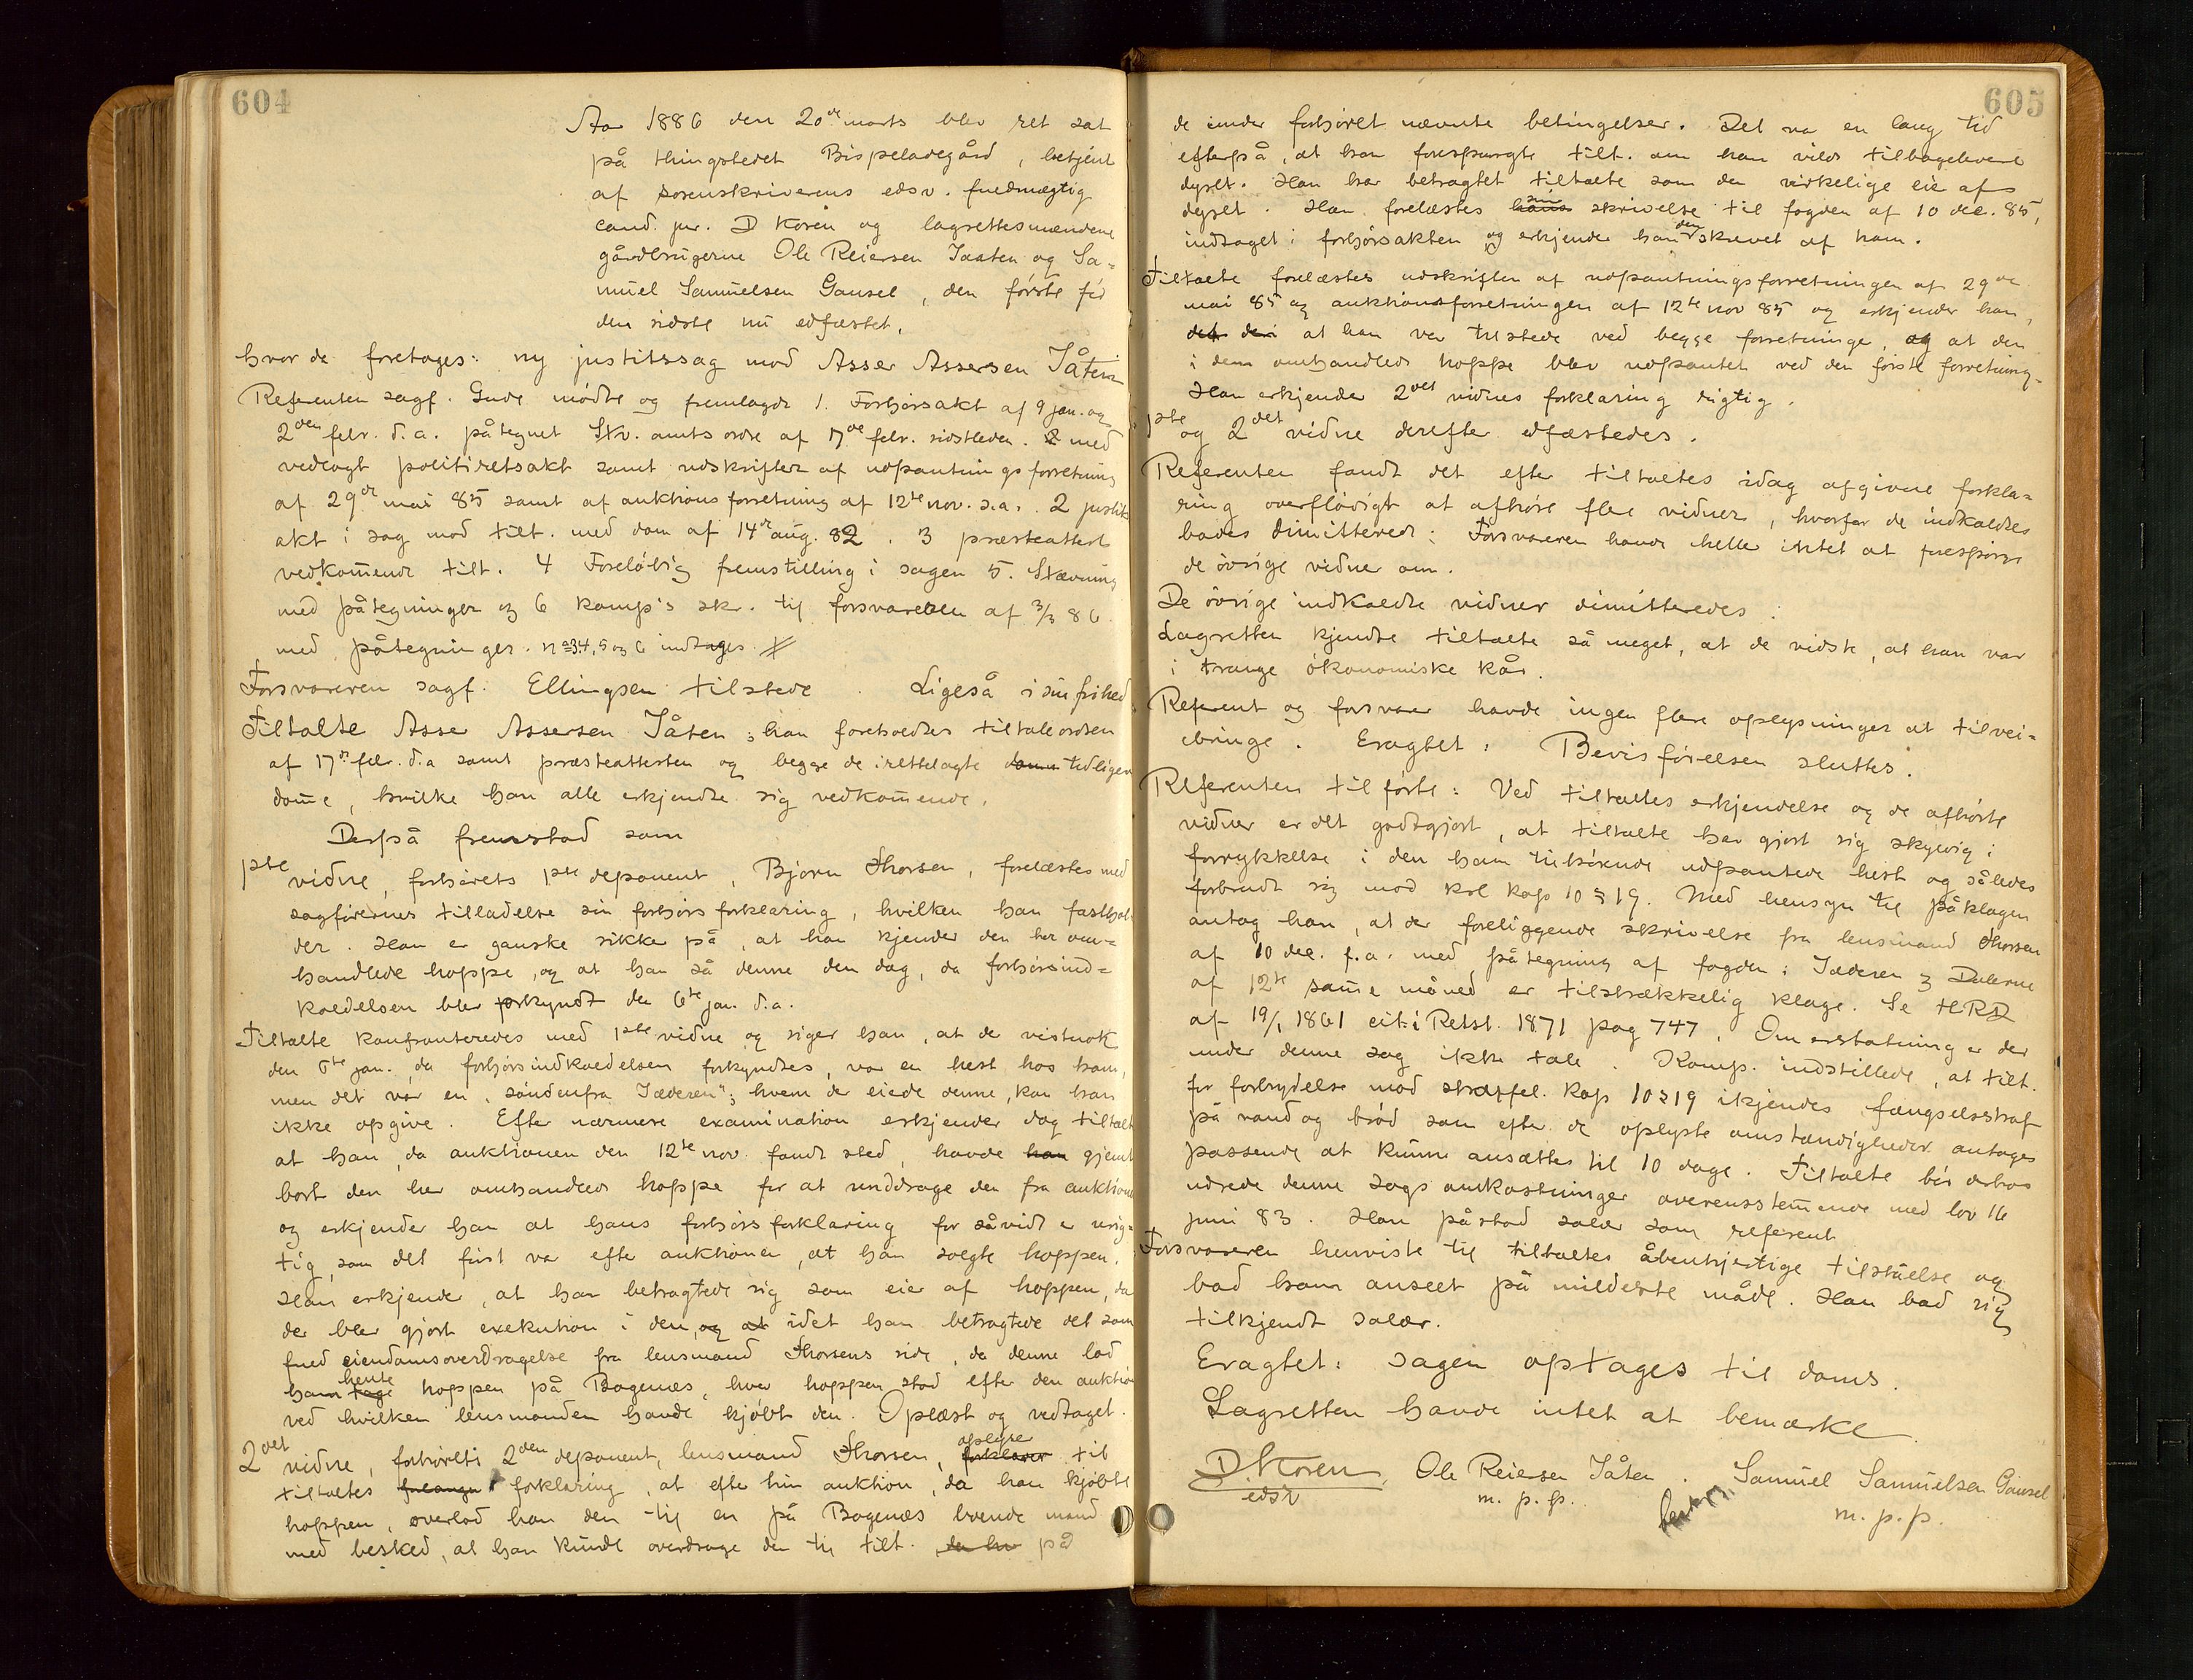 604
Aar 1886 den 20de marts blev ret sat
på thingstedet Bispeladegård, betjent
af sorenskriverens edsv. fuldmægtig
cand. jur. D Koren og lagrettesmændene
gårdbrugerne Ole Reiersen Jaaten og Sa=
muel Samuelsen Gausel, den første før
den sidste nu edfæstet,
hvor de foretoges: ny justitssag mod Asser Assersen Jåten
Referenten sagf. Gude mødte og fremlagde 1. Forhørsakt af 9 jan. og
2den febr. d.a. påtegnet Stv. amts ordre af 17de febr. sidstleden. med
vedlagt politiretsakt samt udskrifter af udpantningsforretning
af 29de mai 85 samt af auktionsforretning af 12te nov. s.a. 2 justits
akt i sag mod tilt. med dom af 14de aug. 82. 3 præsteattest
vedkommende tilt. 4 Foreløbig fremstilling i sagen 5. Stævning
med påtegninger og 6 Komp's skr. til forsvareren af 3/3 86.
med påtegninger. No 3.4, 5 og 6 indtages.
Forsvareren sagf. Ellingsen tilstede. Ligeså i sin frihed
Tiltalte Asser Assersen Jåten; han foreholdtes tiltaleordren
af 17de febr. d.a samt præsteattesten og begge de irettelagte tidligere
domme, hvilke han alle erkjendte sig vedkommende.
Derpå fremstod som
1ste vidne, forhørets 1ste deponent, Bjørn Thorsen, forelæstes med
sagførernes tilladelse sin forhørsforklaring, hvilken han fasthol=
der. Han er ganske sikker på, at han kjender den her om=
handlede hoppe, og at han så denne den dag, da forhørsind=
kaldelsen blev forkyndt den 6te jan. d.a.
Tiltalte konfronteredes med 1ste vidne og siger han, at der vistnok
den 6te jan. da forhørsindkaldelsen forkyndtes, var en hest hos ham,
men det var en "søndenfra Jæderen"; hvem der eiede denne, kan han
ikke opgive. Efter nærmere examination erkjender dog tiltalte
at han, da auktionen den 12te nov. fandt sted, havde han gjemt
bort den her omhandlede hoppe for at unddrage den fra auktion
og erkjender han at hans forhørsforklaring for såvidt er urig=
tig, som det først var efter auktionen, at han solgte hoppen.
Han erkjender, at han betragtede sig som eier af hoppen, da
der blev gjort exekution i den, og at idet han betragtede det som
fuld eiendomsoverdragelse fra lensmand Thorsens side, da denne lod
ham tage hente hoppen på Bogenæs, hvor hoppen stod efter den auktion
ved hvilken lensmanden havde kjøbt den. Oplæst og vedtaget.
2det vidne, forhørets 2den deponent, lensmand Thorsen, forklarer oplyser til
tiltaltes forklaring, at efter hin auktion, da han kjøbte
hoppen, overlod han den til en på Bogenæs boende mand
med besked, at han kunde overdrage den til tilt. på
605
de under forhøret nævnte betingelser. Det var en lang tid
efterpå, at han forespurgte tilt. om han vilde tilbagelevere
dyret. Han har betragtet tiltalte som den virkelige eier af
dyret. Han forelæstes hans sin skrivelse til fogden af 10 dec. 85,
indtaget i forhørsakten og erkjender han den skrevet af ham.
Tiltalte forelæstes udskriften af udpantningsforretningen af 29de
mai 85 og auktionsforretningen af 12te nov 85 og erkjender han,
det den at han var tilstede ved begge forretninger, og at den
i dem omhandlede hoppe blev udpantet ved den første forretning.
Han erkjender 2det vidnes forklaring rigtig.
1ste og 2det vidne derefter edfæstedes.
Referenten fandt det efter tiltaltes idag afgivne forkla=
ring overflødigt at afhøre flere vidner, hvorfor de indkaldte
bades dimitterede: Forsvareren havde heller intet at forespørge
de øvrige vidner om.
De øvrige indkaldte vidner dimitteredes.
Lagretten kjendte tiltalte så meget, at de vidste, at han var
i trange økonomiske kår.
Referent og forsvarer havde ingen flere oplysninger at tilvei=
ebringe. Eragtet: Bevisførelsen sluttes.
Referenten tilførte: Ved tiltaltes erkjendelse og de afhørte
vidner er det godtgjort, at tiltalte har gjort sig skyldig i
forrykkelse i den ham tilhørende udpantede hest og således
forbrudt sig mod krl kap 10 § 19. Med hensyn til påklagen
antog han, at der foreliggende skrivelse fra lensmand Thorsen
af 10 dec. f.a. med påtegning af fogden i Jæderen og Dalerne
af 12te samme måned er tilstrækkelig klage. Se HRD
af 19/1 1861 cit. i Retst. 1871 pag 747. Om erstatning er der
under denne sag ikke tale. Komp. indstillede, at tilt.
for forbrydelse mod straffel. kap 10 § 19 ikjendes fængselsstraf
på vand og brød som efter de oplyste omstændigheder antages
passende at kunne ansættes til 10 dage. Tiltalte bør derhos
udrede denne sags omkostninger overensstemmende med lov 16
juni 83. Han påstod salær som referent
Forsvareren henviste til tiltaltes åbenhjertige tilståelse og
bad ham anseet på mildeste måde. Han bad sig
tilkjendt salær.
Eragtet: sagen optages til doms.
Lagretten havde intet at bemærke
D. Koren Ole Reiersen Jåten. Samuel Samuelsen Gausel
edsv m. p. p. m. p. p.